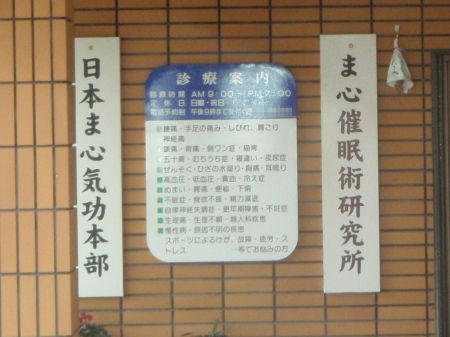 日本ま心気功本部
診療案内
診療時間 AM9:00~PM7:00
定休日 日曜・祝日
電話予約制 午後9時まで受付
腰痛・手足の痛み・しびれ、肩こり
神経痛
頭痛・背痛・側ワン症・猫背
五十肩・むちうち症・寝違い・夜尿症
ぜんそく・ひざの水溜り・胸痛・耳鳴り
高血圧・低血圧・貧血・冷え症
めまい・胃痛・便秘・下痢
不眠症・食欲不振・精力減退
自律神経失調症・更年期障害・不妊症
生理痛・生理不順・婦人科疾患
慢性病・原因不明の疾患
スポーツによるけが、故障・疲労・ス
トレス 等でお悩みの方
ま心催眠術研究所